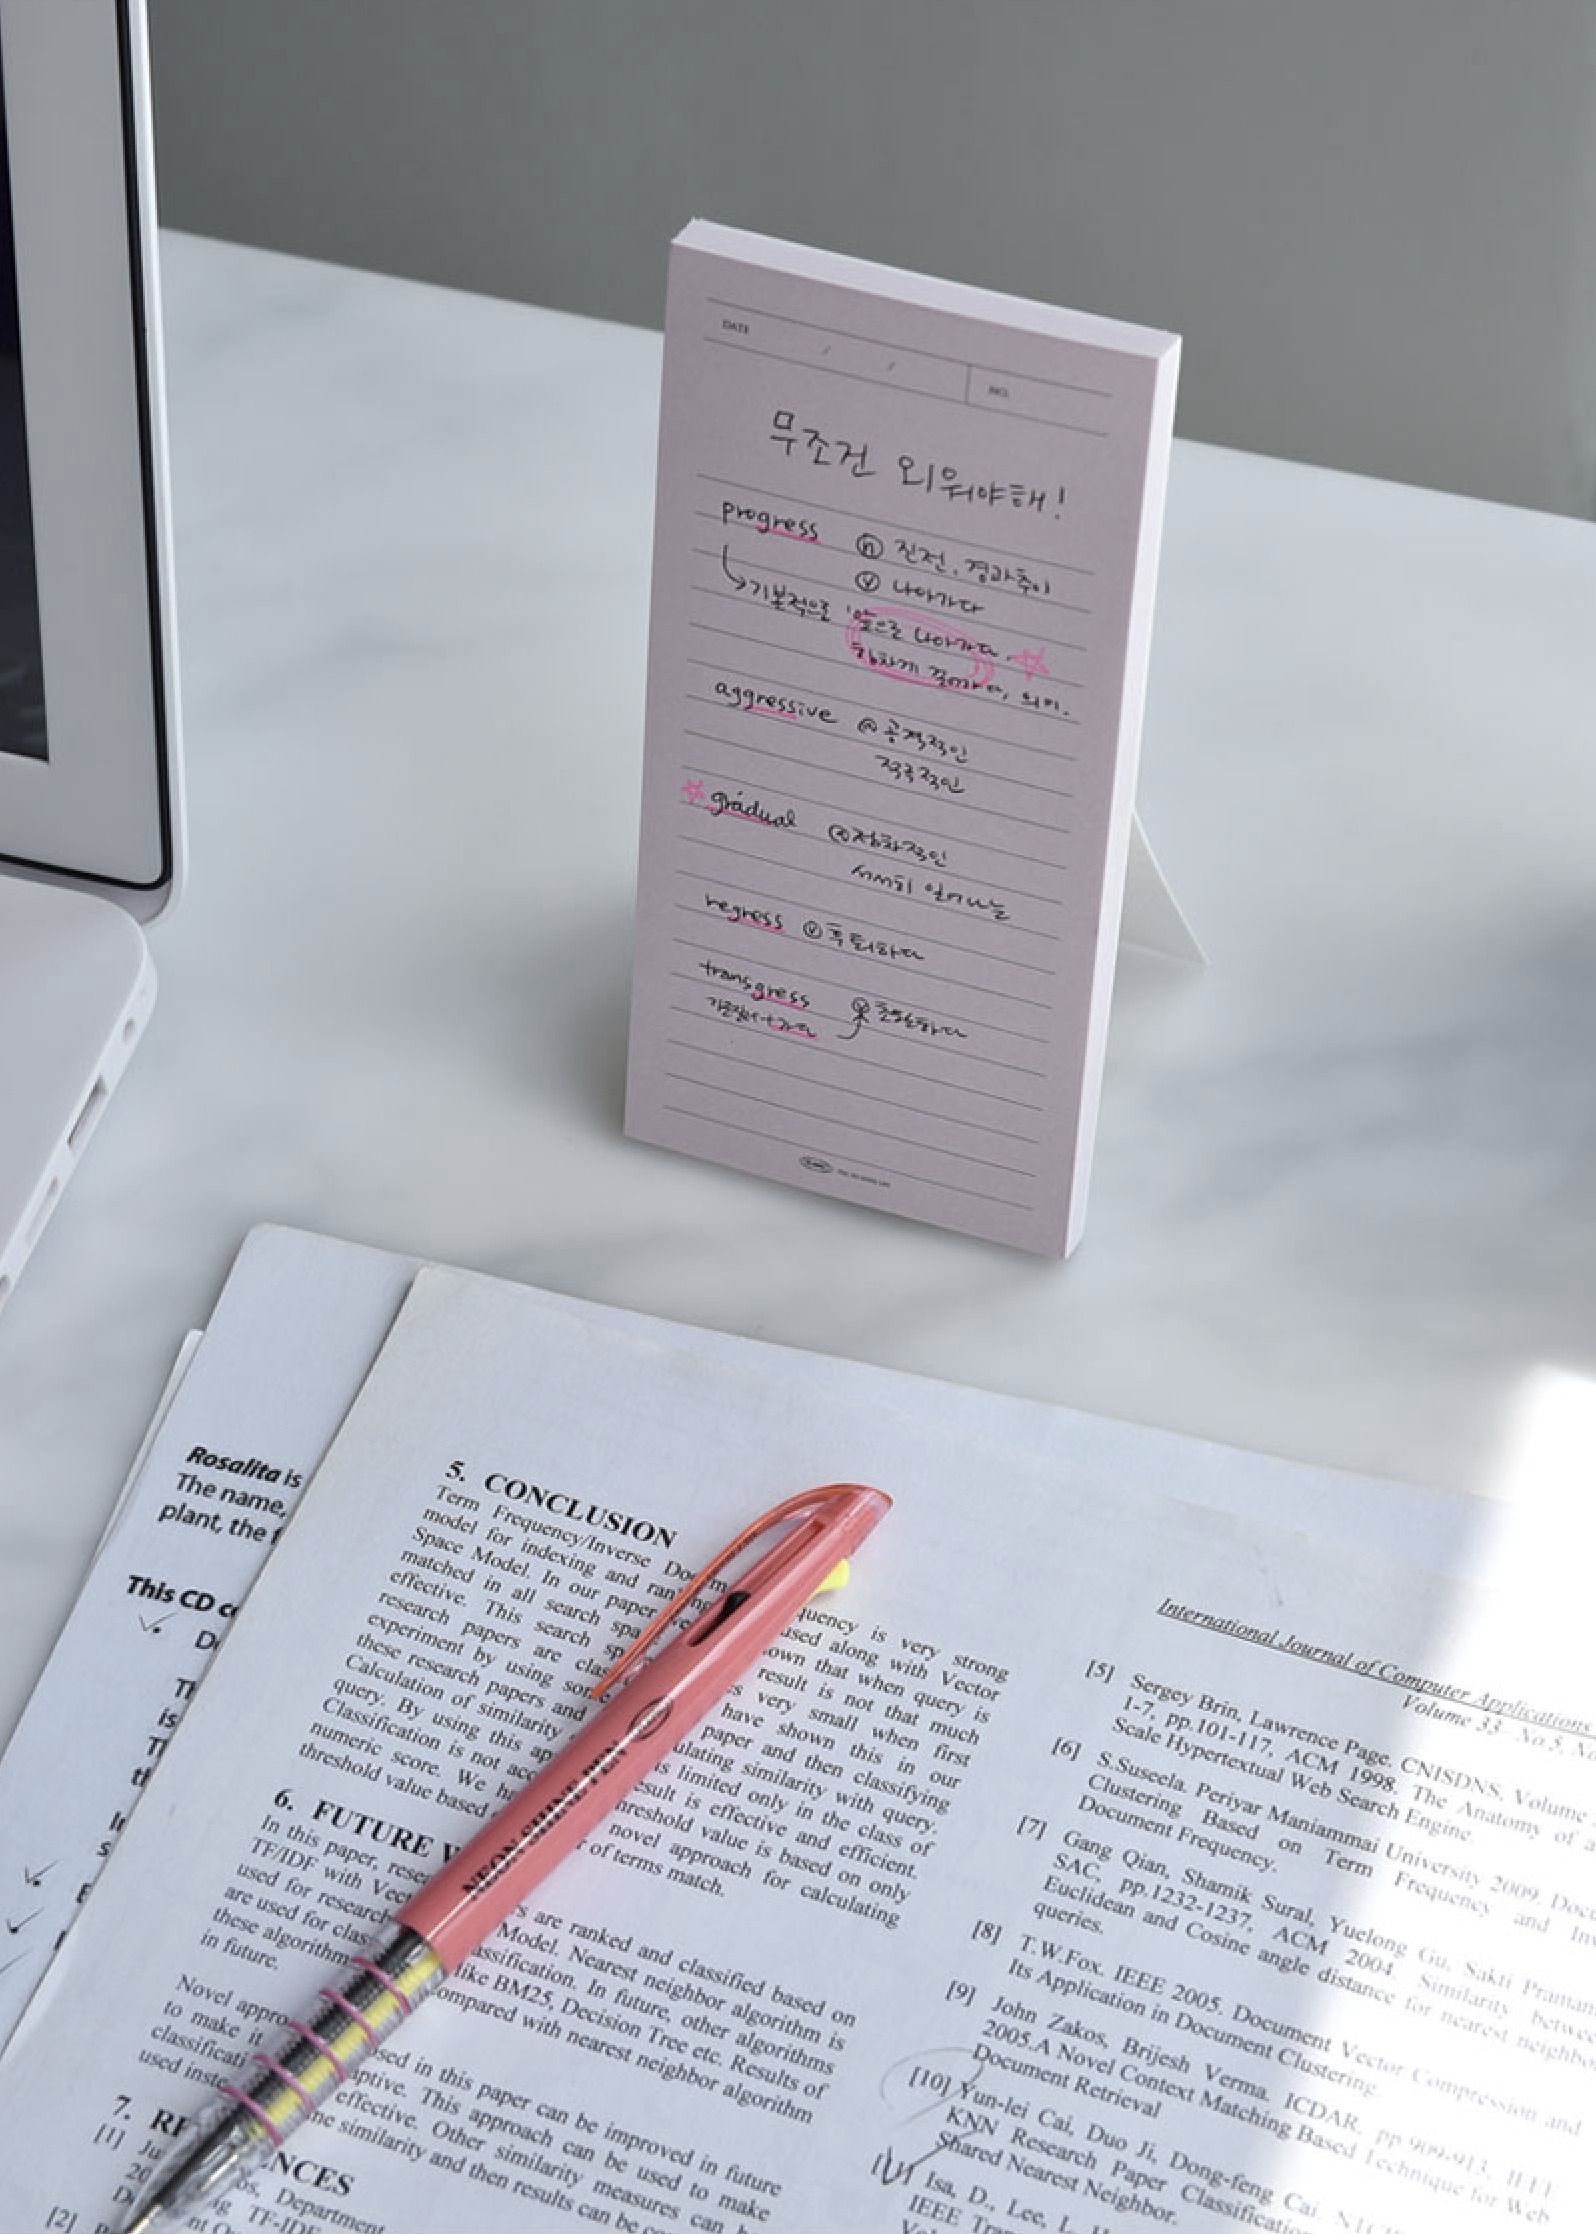 DATE / / NO.
무조건 외워야해!
progress ⓝ 진전, 경과추이
ⓥ 나아가다
↳기본적으로 '앞으로 나아가다.
힘차게 걸어가다, 의미.
aggressive ⓐ 공격적인
적극적인
gradual ⓐ 점차적인
서서히 일어나는
regress ⓥ 후퇴하다
transgress ⓥ
+가다
Rosalita is
The name,
plant, the f
This CD co
5. CONCLUSION
Term Frequency/Inverse Docum quency is very strong
model for indexing and ranking used along with Vector
Space Model. In our paper we own that when query is
matched in all search spa result is not that much
effective. This search sp es very small when first
research papers are clas have shown this in our
experiment by using some paper and then classifying
these research papers and ulating similarity with query.
Calculation of similarity is limited only in the class of
query. By using this ap esult is effective and efficient.
Classification is not acc hreshold value is based on only
numeric score. We ha novel approach for calculating
threshold value based of terms match.
6. FUTURE W
In this paper, resea s are ranked and classified based on
TF/IDF with Vect Model. Nearest neighbor algorithm is
used for research assification. In future, other algorithms
are used for clas like BM25, Decision Tree etc. Results of
these algorithm ompared with nearest neighbor algorithm
in future.
Novel appro sed in this paper can be improved in future
to make it aptive. This approach can be used to make
classificati effective. Other similarity measures can b
used inste ne similarity and then results can be co
7. RE NCES
[1] Ju os, Department
20 g TF-IDF
[2]
NEON SHINE PEN
International Journal of Computer Applications
Volume 33– No.5, No
[5] Sergey Brin, Lawrence Page. CNISDNS, Volume
1-7, pp.101-117, ACM 1998. The Anatomy of a
Scale Hypertextual Web Search Engine
[6] S.Suseela. Periyar Maniammai University 2009. Docu
Clustering Based on Term Frequency and Inv
Document Frequency.
[7] Gang Qian, Shamik Sural, Yuelong Gu. Sakti Praman
SAC, pp.1232-1237, ACM 2004. Similarity betwee
Euclidean and Cosine angle distance for nearest neighbo
queries.
[8] T.W.Fox. IEEE 2005. Document Vector Compression and
Its Application in Document Clustering.
[9] John Zakos, Brijesh Verma. ICDAR, pp 909-913, IEEE
2005.A Novel Context Matching Based Technique for Web
Document Retrieval
[10] Yun-lei Cai, Duo Ji, Dong-feng Cai.
KNN Research Paper Classification
Shared Nearest Neighbor.
Isa, D., Lee, L.
IEEE Tran